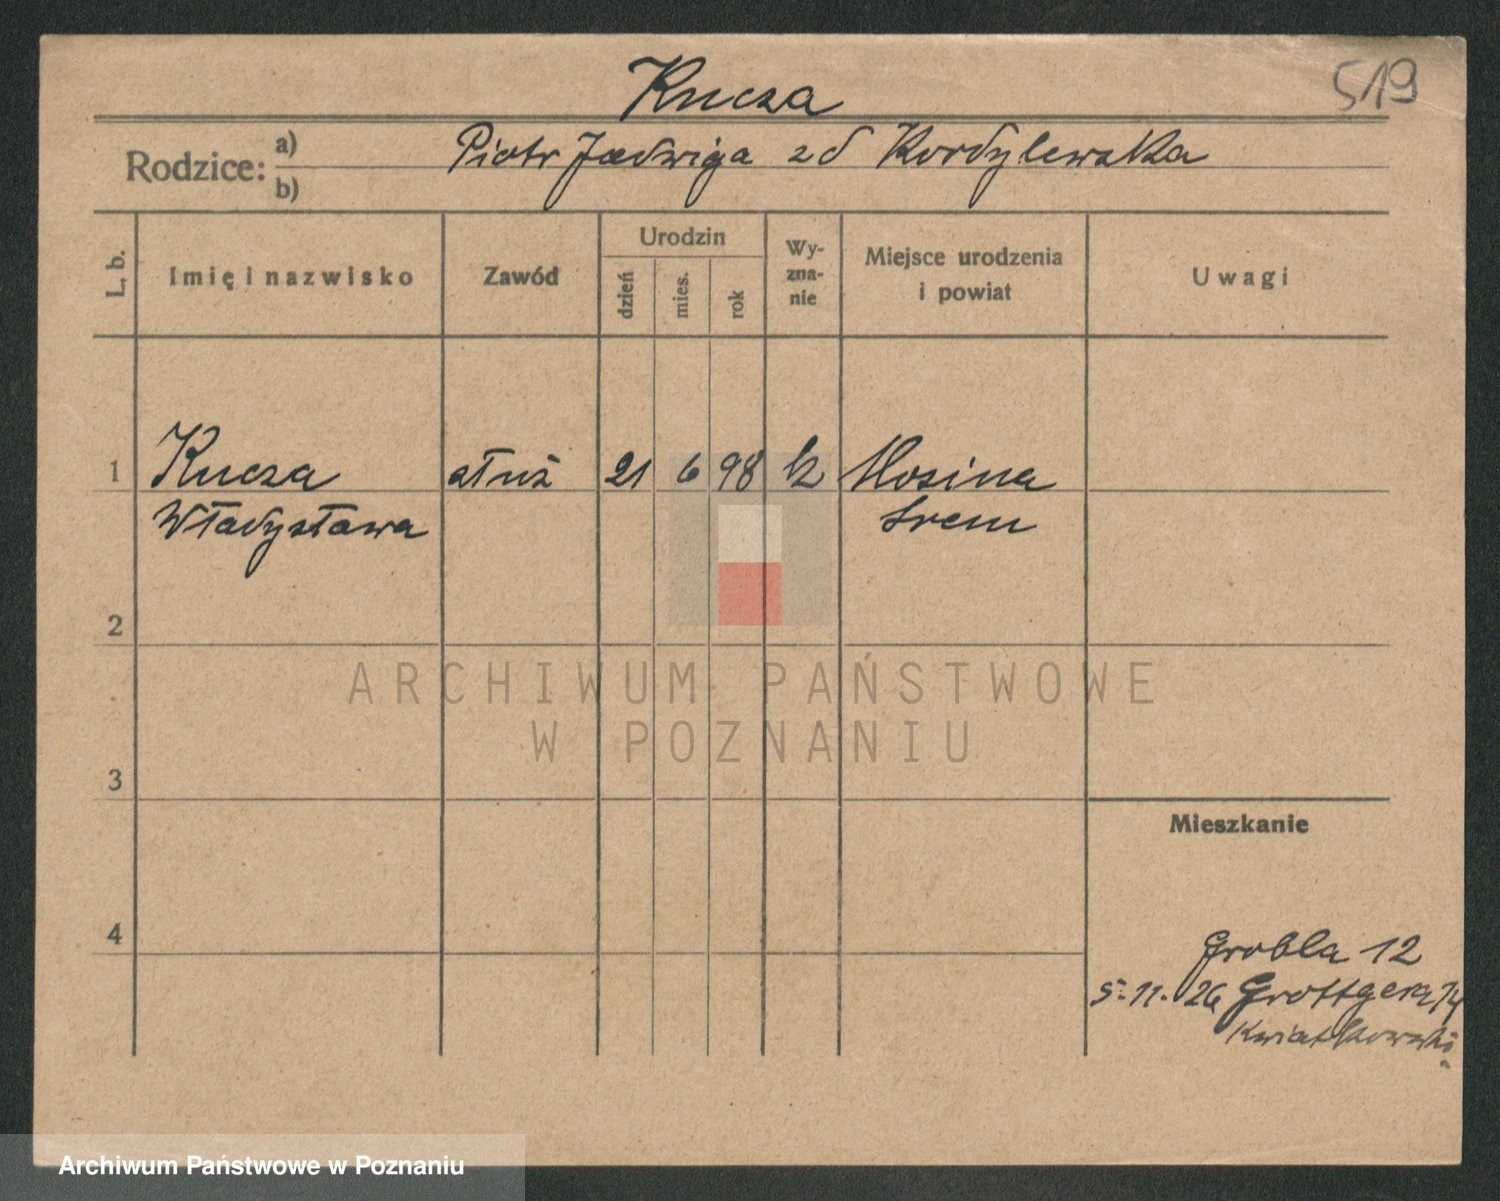 519
Kucza
Rodzice: a) Piotr Jadwiga zd Kordylewska
b)
L. b. Imię i nazwisko Zawód Urodzin dzień mies. rok Wy-zna-nie Miejsce urodzenia i powiat Uwagi
1 Kucza służ 21 6 98 k Mosina
Władysława Srem
2
3
Mieszkanie
4
Grobla 12
5.11.26 Grottgera
Kwiatkowski
ARCHIWUM PAŃSTWOWE
W POZNANIU
Archiwum Państwowe w Poznaniu